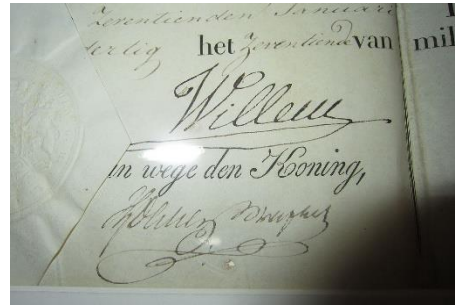 Zeventienden Januari
dertig het Zeventiende van mil
Willem
In wege den Koning,